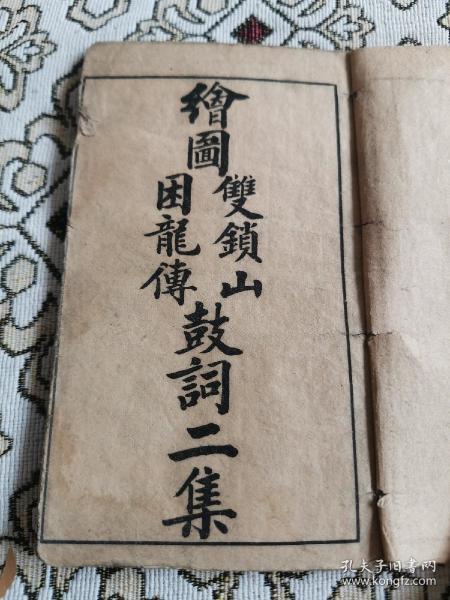 繪圖
雙鎖山
困龍傳
鼓詞二集
孔夫子旧书网
www.kongfz.com